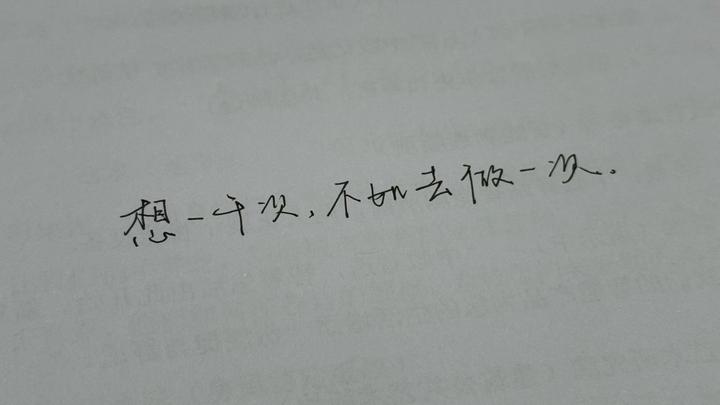 想一千次,不如去做一次.